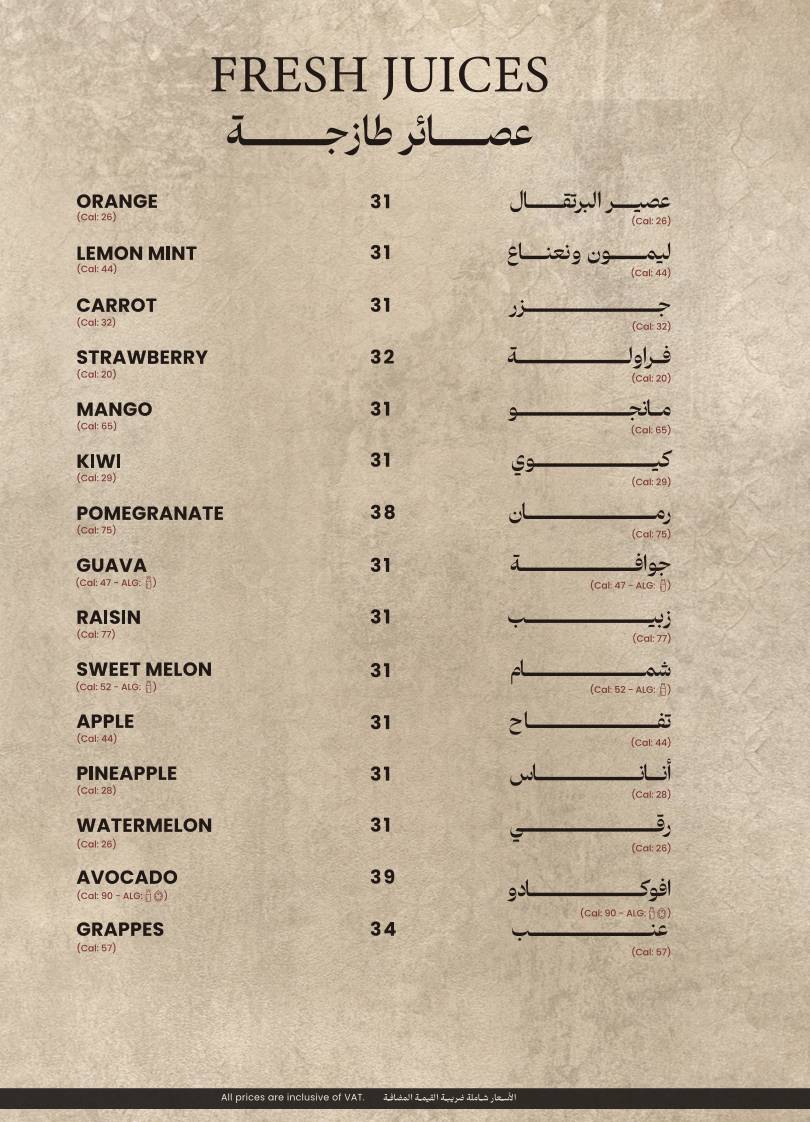 FRESH JUICES
عصائر طازجة
ORANGE 31 عصير البرتقال
(Cal: 26) (Cal: 26)
LEMON MINT 31 ليمون ونعناع
(Cal: 44) (Cal: 44)
CARROT 31 جزر
(Cal: 32) (Cal: 32)
STRAWBERRY 32 فراولة
(Cal: 20) (Cal: 20)
MANGO 31 مانجو
(Cal: 65) (Cal: 65)
KIWI 31 كيوي
(Cal: 29) (Cal: 29)
POMEGRANATE 38 رمان
(Cal: 75) (Cal: 75)
GUAVA 31 جوافة
(Cal: 47 - ALG: ) (Cal: 47 - ALG: )
RAISIN 31 زبيب
(Cal: 77) (Cal: 77)
SWEET MELON 31 شمام
(Cal: 52 - ALG: ) (Cal: 52 - ALG: )
APPLE 31 تفاح
(Cal: 44) (Cal: 44)
PINEAPPLE 31 أناناس
(Cal: 28) (Cal: 28)
WATERMELON 31 رقي
(Cal: 26) (Cal: 26)
AVOCADO 39 افوكادو
(Cal: 90 - ALG: ) (Cal: 90 - ALG: )
GRAPPES 34 عنب
(Cal: 57) (Cal: 57)
All prices are inclusive of VAT. الأسعار شاملة ضريبة القيمة المضافة